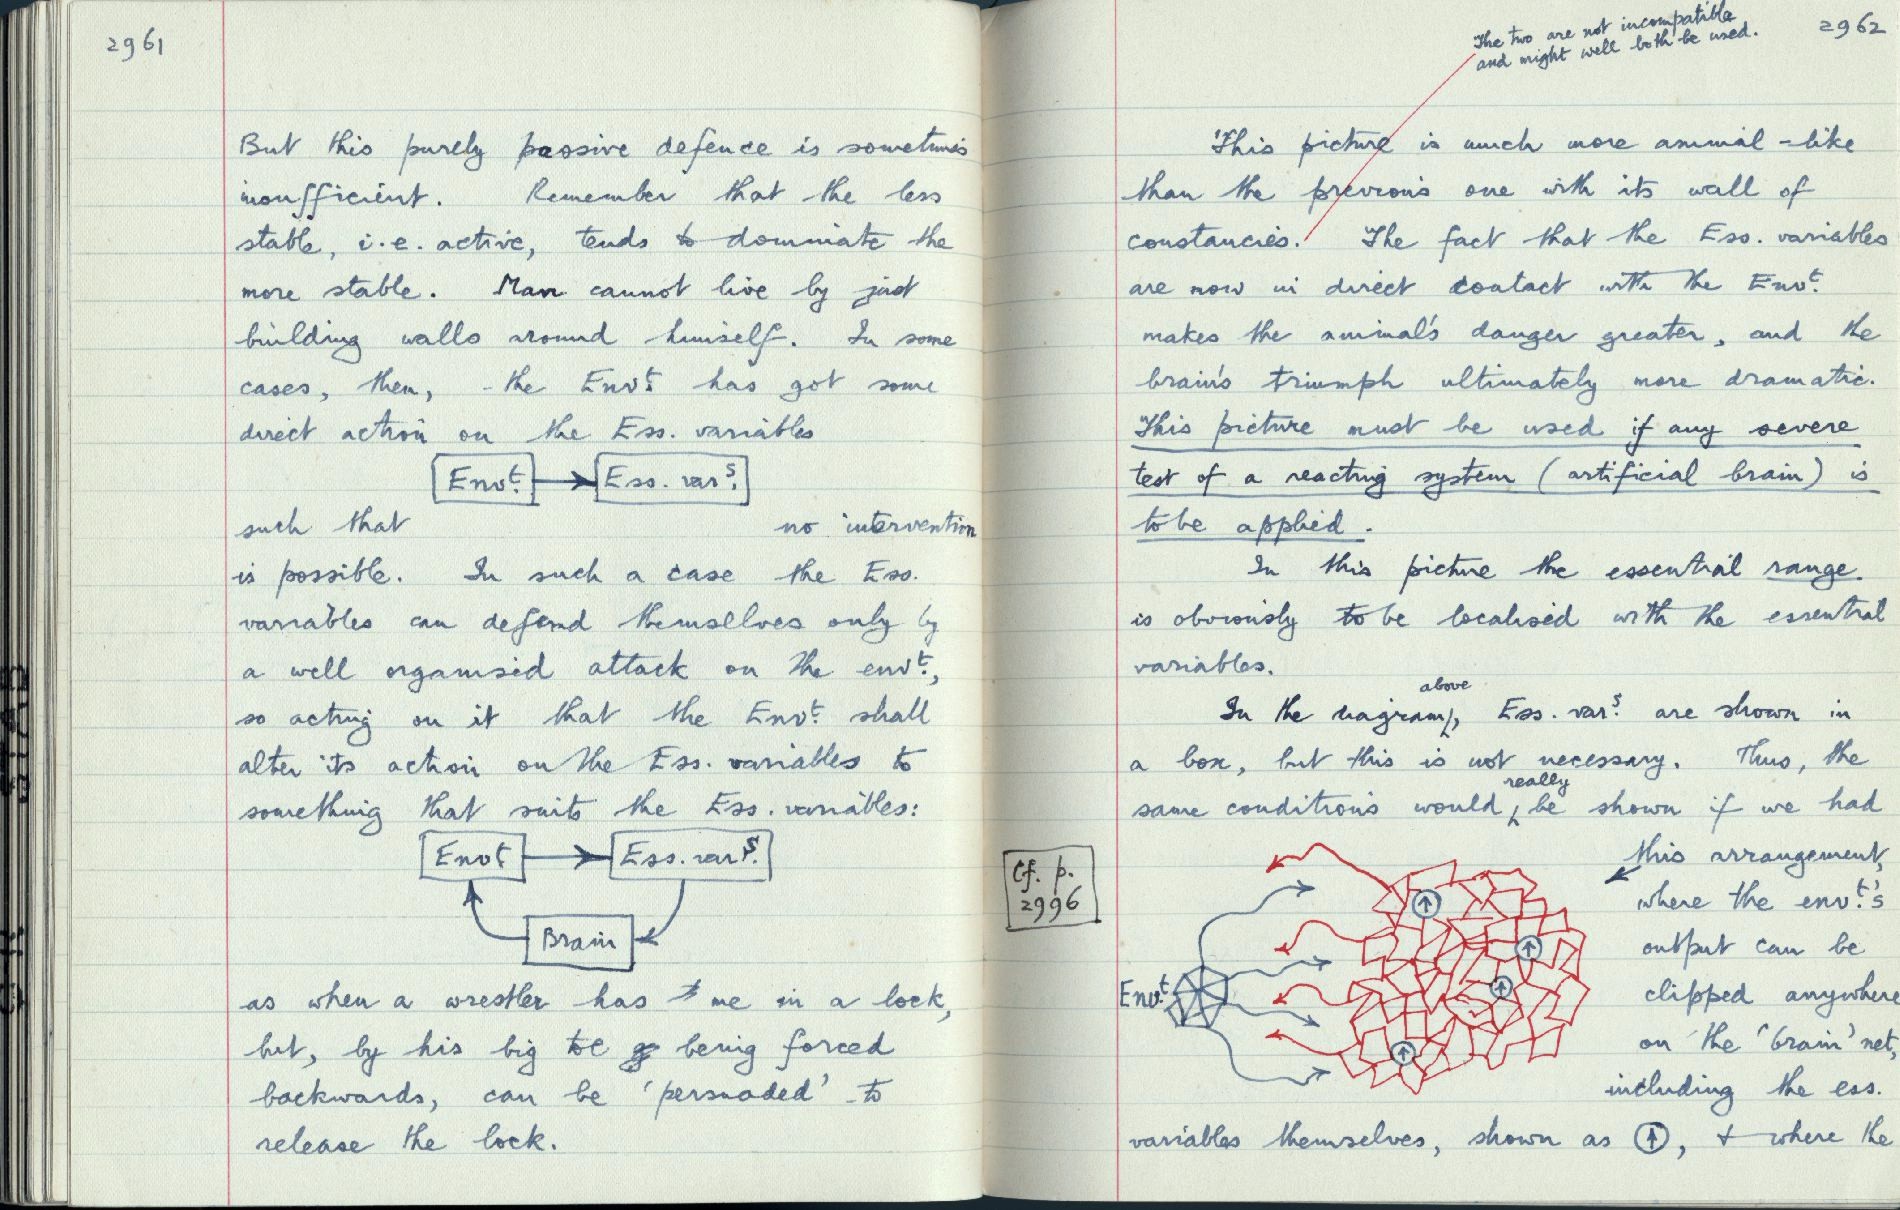 2961
But this purely passive defence is sometimes
insufficient. Remember that the less
stable, i.e. active, tends to dominate the
more stable. Man cannot live by just
building walls around himself. In some
cases, then, the Envt. has got some
direct action on the Ess. variables
Envt. Ess. vars.
such that no intervention
is possible. In such a case the Ess.
variables can defend themselves only by
a well organised attack on the envt.,
so acting on it that the Envt. shall
alter its action on the Ess. variables to
something that suits the Ess. variables:
Envt Ess. vars.
Brain
as when a wrestler has me in a lock,
but, by his big toe being forced
backwards, can be 'persuaded' to
release the lock.
2962
The two are not incompatible
and might well both be used.
This picture is much more animal-like
than the previous one with its wall of
constancies. The fact that the Ess. variables
are now in direct contact with the Envt.
makes the animal's danger greater, and the
brain's triumph ultimately more dramatic.
This picture must be used if any severe
test of a reacting system (artificial brain) is
to be applied.
In this picture the essential range
is obviously to be localised with the essential
variables.
In the diagram above, Ess. vars. are shown in
a box, but this is not necessary. Thus, the
same conditions would really be shown if we had
this arrangement,
where the envt.'s
output can be
clipped anywhere
on the 'brain' net,
including the ess.
variables themselves, shown as ↑, + where the
Cf. p.
2996
Envt.